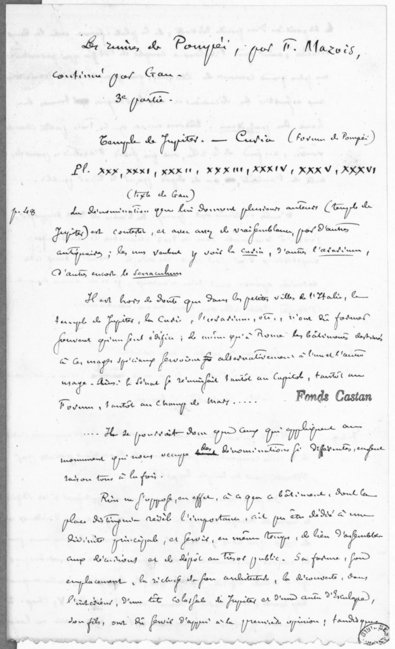 Les ruines de Pompéi, par F. Mazois,
continué par Gau.
3e partie.
Temple de Jupiter. — Curia (Forum de Pompéi)
Pl. XXX, XXXI, XXXII, XXXIII, XXXIV, XXXV, XXXVI
(texte de Gau)
p. 48
La dénomination que lui donnent plusieurs auteurs (temple de
Jupiter) est contestée, et avec assez de vraisemblance, par d'autres
antiquaires; les uns veulent y voir la curia, d'autres l'ærarium,
d'autres encore le senaculum
Il est hors de doute que dans les petites villes de l'Italie, le
temple de Jupiter, la Curie, l'ærarium, etc., n'ont dû former
souvent qu'un seul édifice; de même qu'à Rome les bâtiments destinés
à ces usages spéciaux servaient alternativement à l'un et l'autre
usage. Ainsi le Sénat se réunissait tantôt au Capitole, tantôt au
Forum, tantôt au champ de Mars.....
Fonds Castan
.... Il se pourrait donc que ceux qui appliquent au
monument qui nous occupe des dénominations si différentes, eussent
raison tous à la fois.
Rien ne s'oppose, en effet, à ce que ce bâtiment, dont la
place distinguée révèle l'importance, ait pu être dédié à une
divinité principale, et servir, en même temps, de lieu d'assemblée
aux décurions et de dépôt au trésor public. Sa forme, son
emplacement, la richesse de son architecture, la découverte, dans
l'intérieur, d'une tête colossale de Jupiter et d'une autre d'Esculape,
son fils, ont dû servir d'appui à la première opinion; tandis que